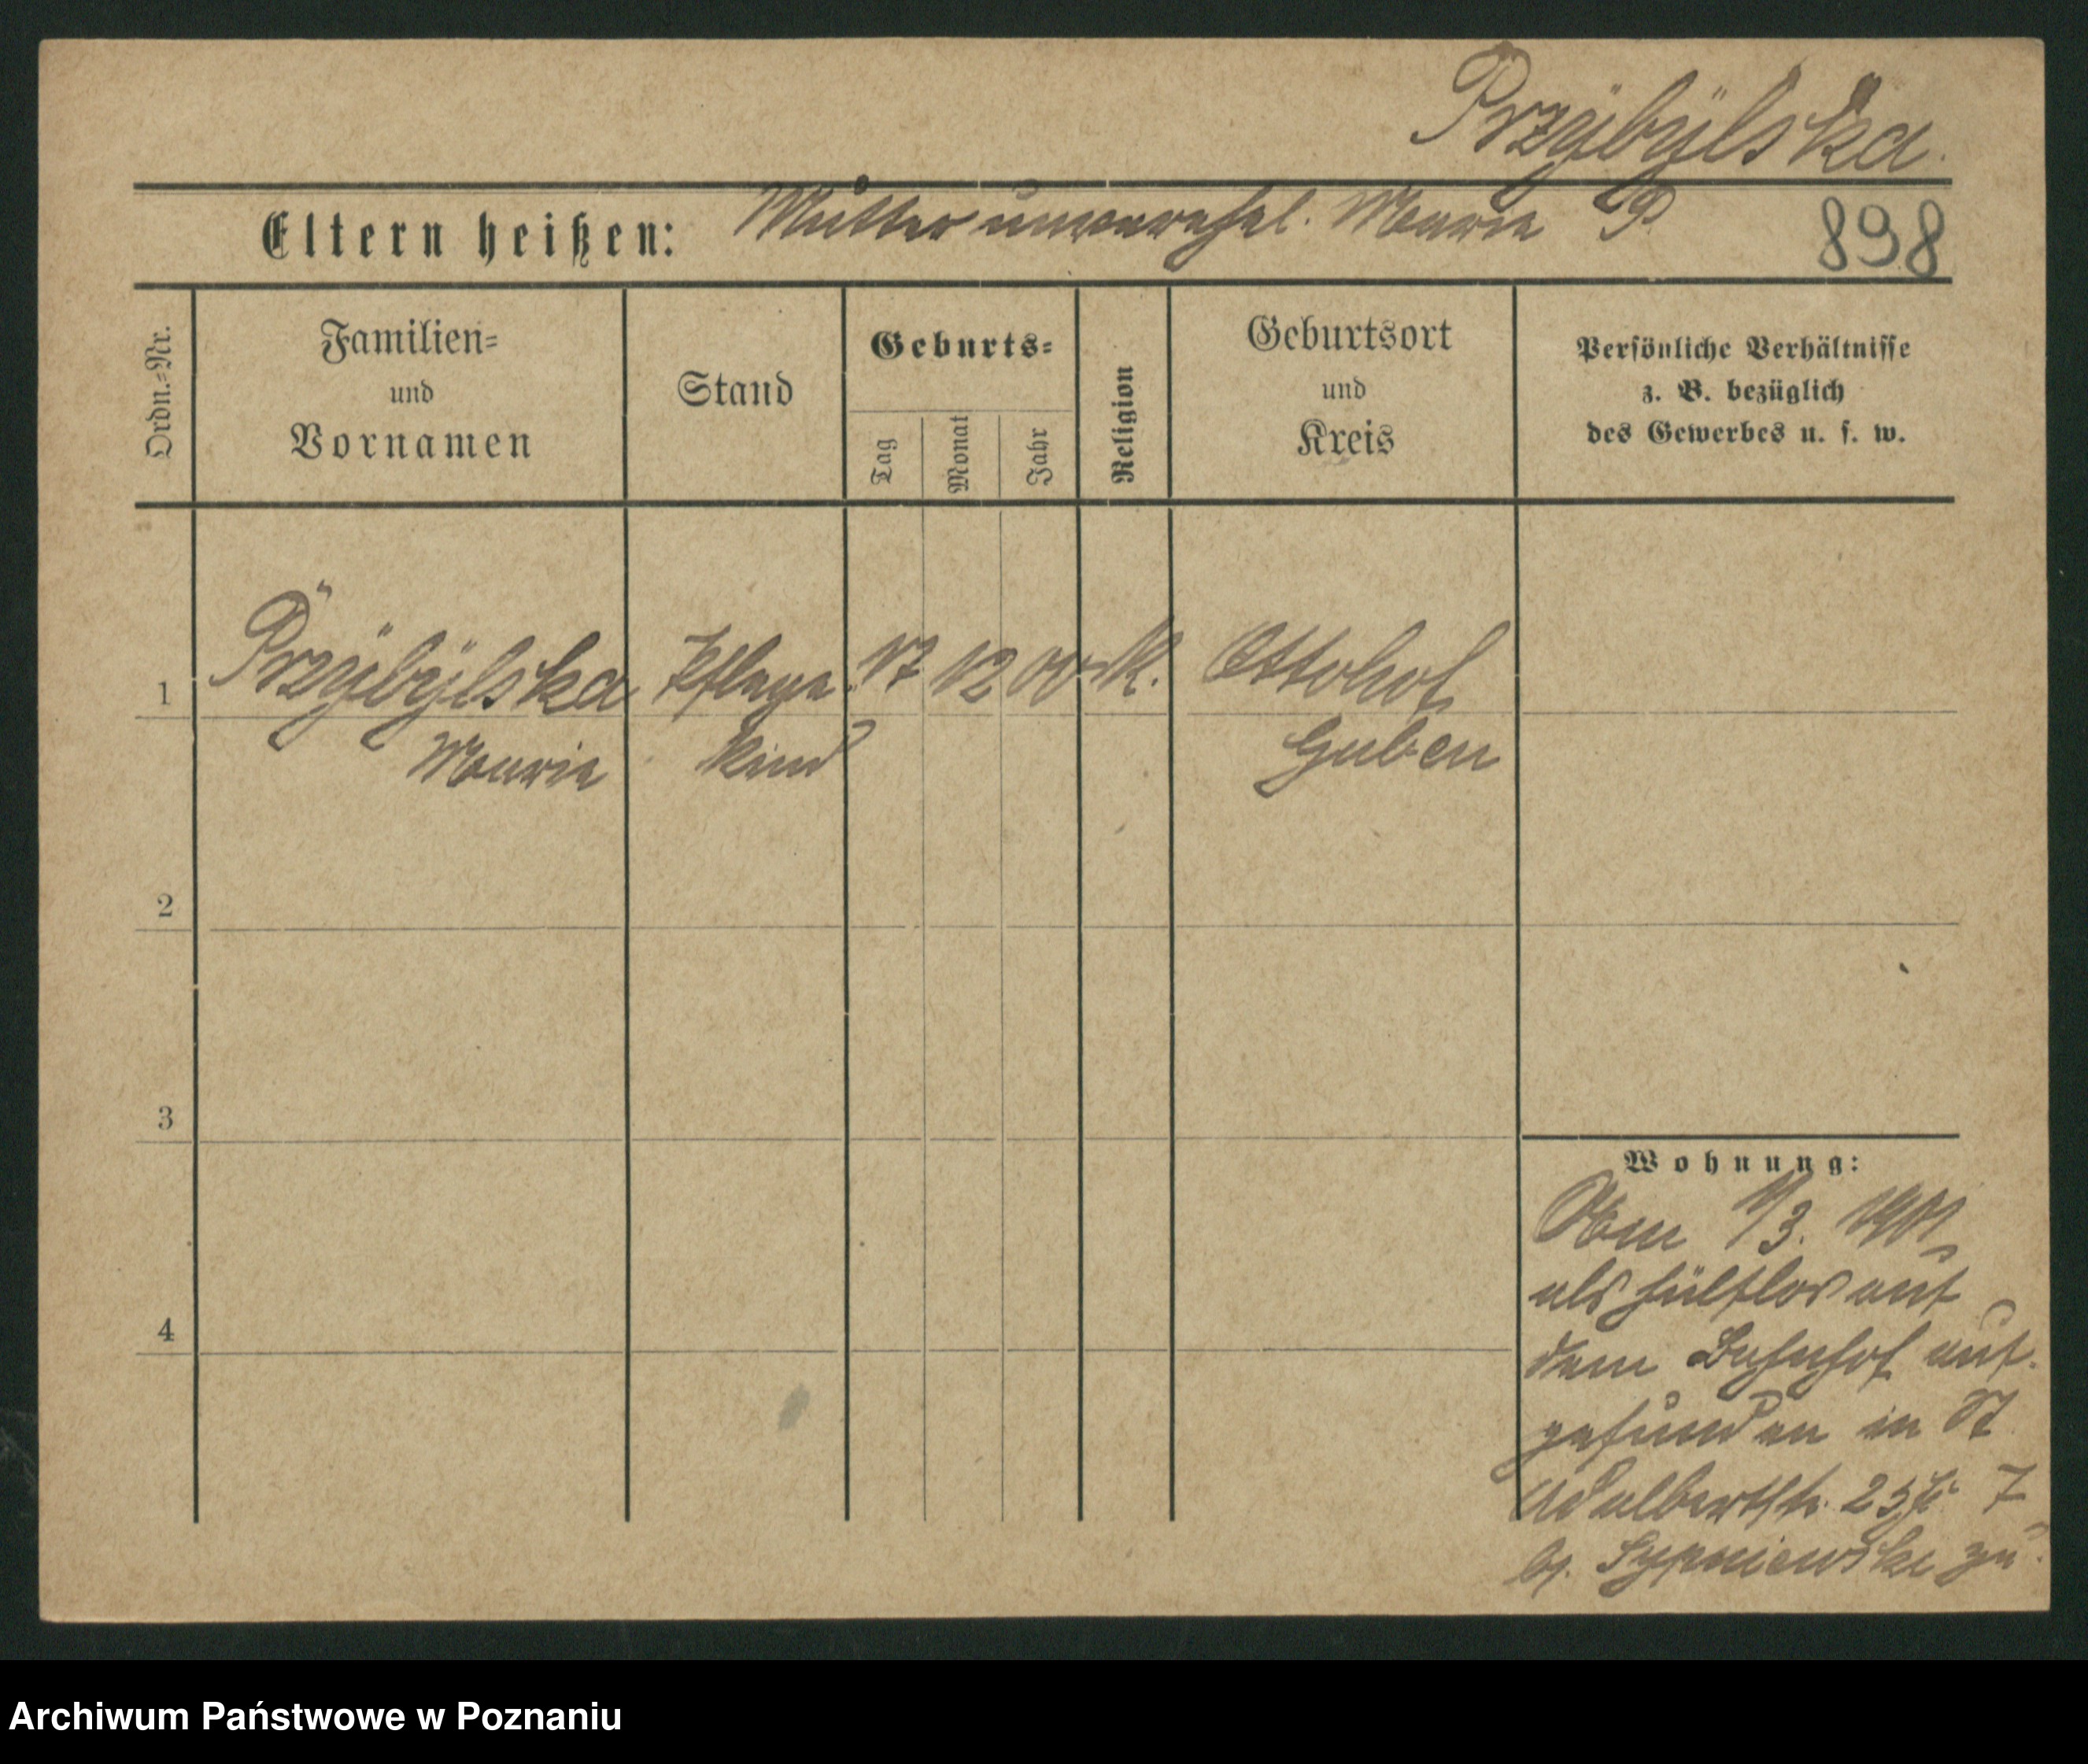 Przÿbÿlska.
Eltern heißen: Mutter unverehel. Marie P
898
Ordn.=Nr.
Familien=
und
Vornamen
Stand
Geburts=
Tag
Monat
Jahr
Religion
Geburtsort
und
Kreis
Persönliche Verhältnisse
z. B. bezüglich
des Gewerbes u. s. w.
1 Przÿbÿlska Pflege 17 12 00 K. Ottohof
Marie kind Guben
2
3
4
Wohnung:
Am 1/3. 1901
als hülflos auf
dem Bahnhof auf-
gefunden in St
Adalbertstr. 25 7
b. Sypniewska zu
Archiwum Państwowe w Poznaniu